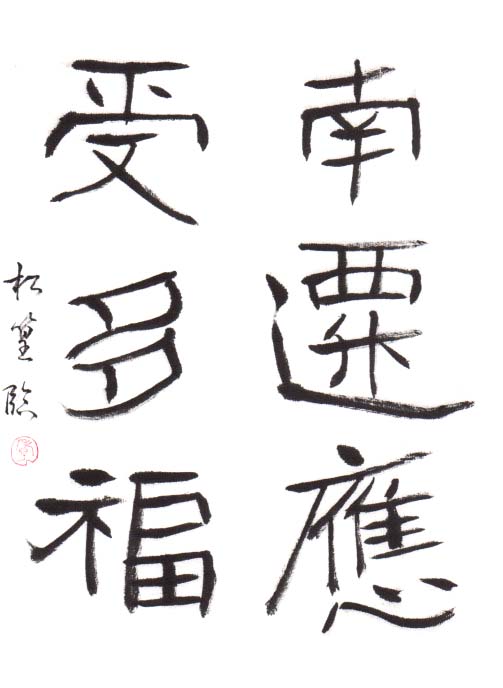 南遷應
受多福
松篁臨